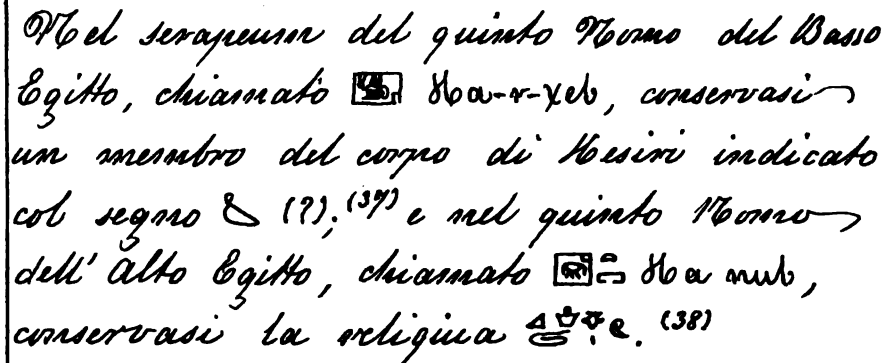 Nel serapeum del quinto Nomo del Basso
Egitto, chiamato Ha-r-χeb, conservasi
un membro del corpo di Hesiri indicato
col segno (?);(37) e nel quinto Nomo
dell' Alto Egitto, chiamato Ha nub,
conservasi la reliquia (38)